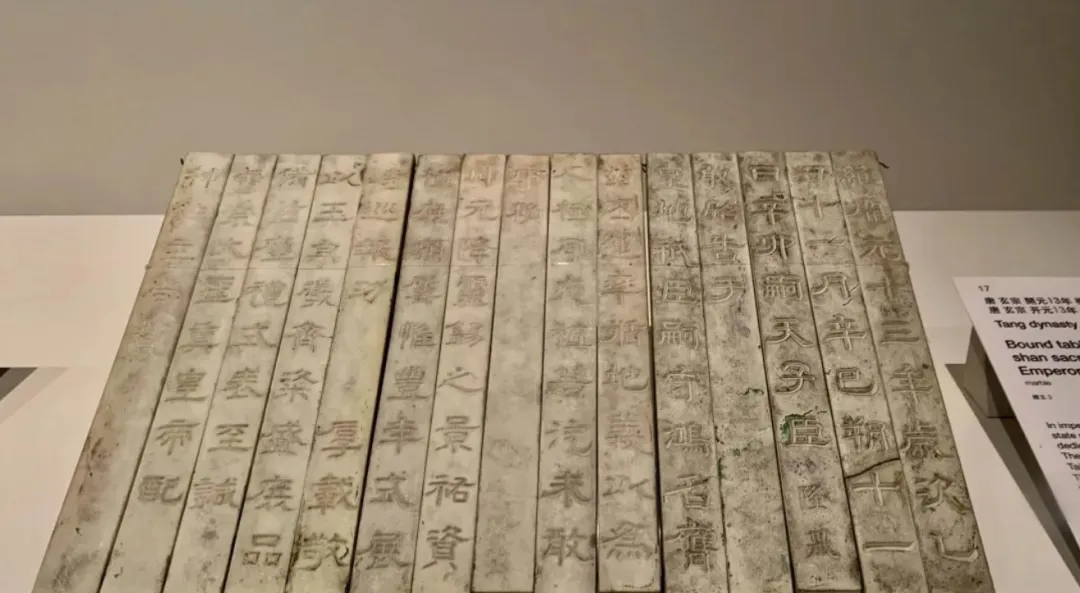 維開元十三年歲次乙
丑十一月辛巳朔十一
日辛卯嗣天子臣隆基
敢昭告于
皇地祇臣嗣守鴻名膺
茲丕運率循地義以為
人極夙夜祗若汔未敢
康賴
坤元降靈錫之景祐資
植庶類屢惟豐年式展
時巡報功厚載敬
以玉帛犧齊粢盛庶品
備茲瘞禮式表至誠
睿宗大聖真皇帝配
神作主
17
唐 玄宗 開元13年
唐 玄宗 开元13年
Tang dynasty
Bound
shan
Emperor
marble
In
state
The